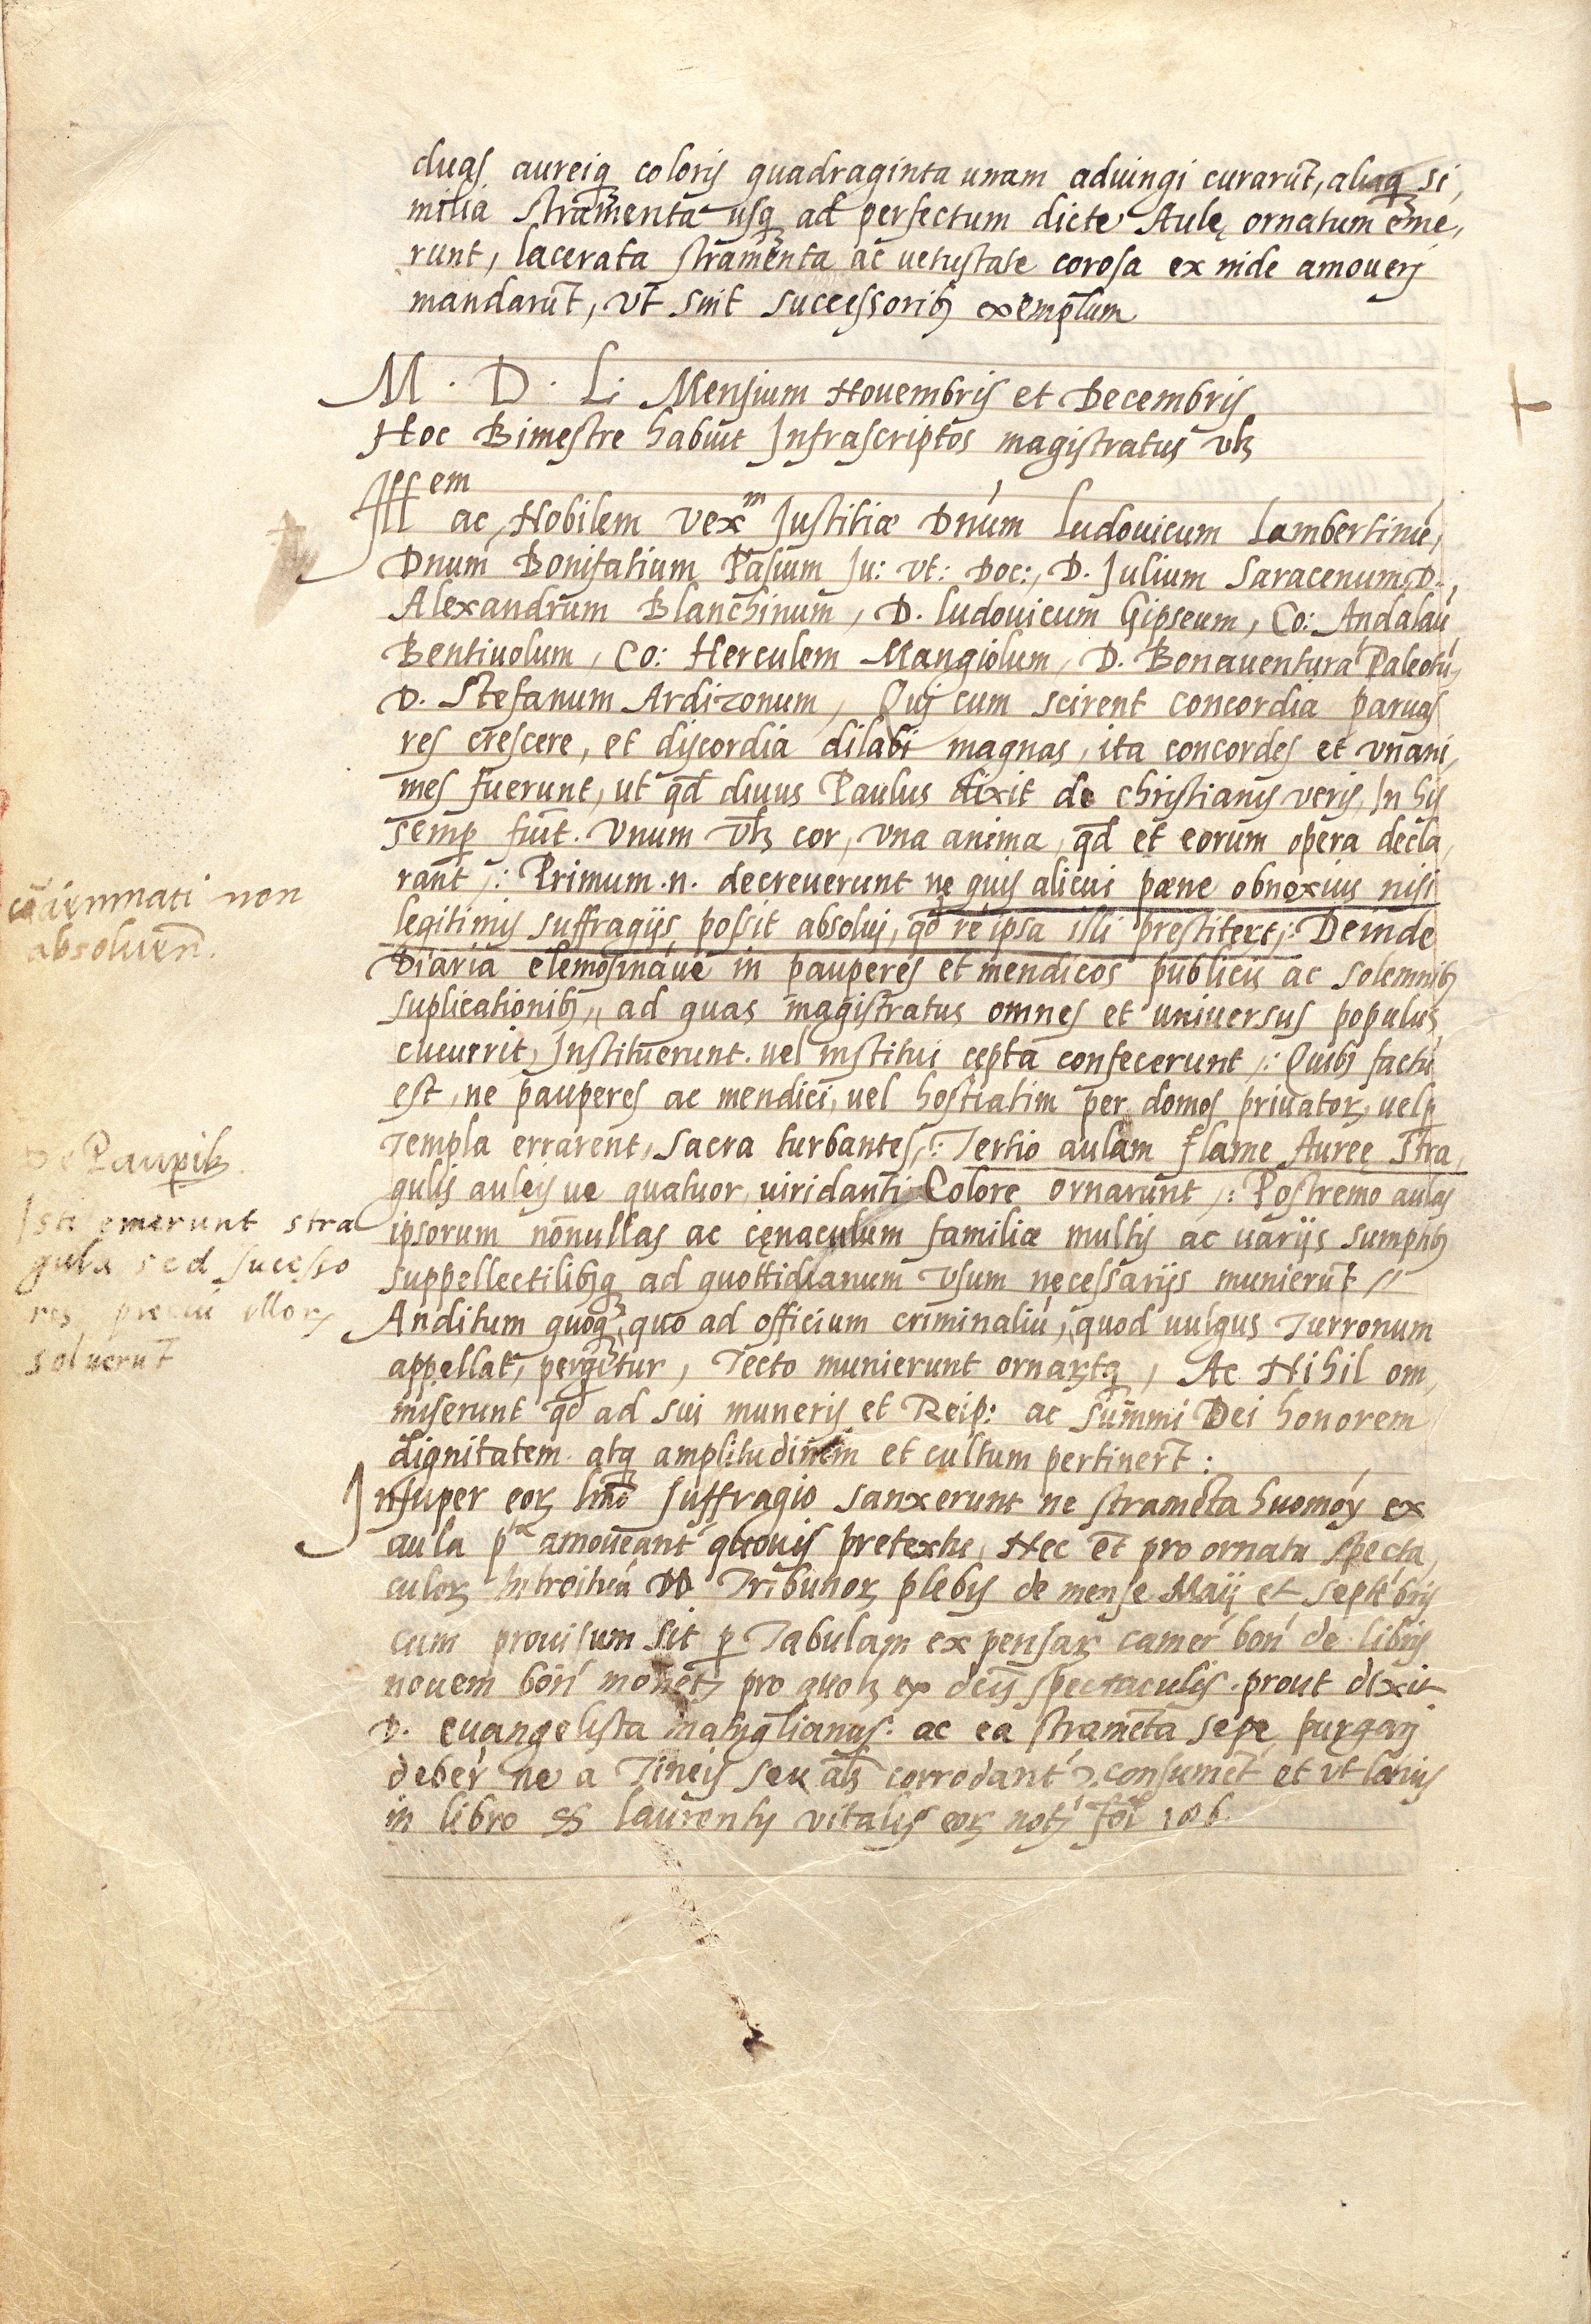 duas, aureiq coloris quadraginta unam adiungi curarūt, aliaq si,
milia stramenta usq ad perfectum dicte Aulę ornatum eme,
runt, lacerata stramenta ac uetustate corosa ex inde amouerj
mandarūt, vt sint successorib exemplum
M . D . L: Mensium Nouembris et Decembris
Hoc Bimestre habuit Infrascriptos magistratus vz
Ill em
ac Nobilem vex m Justitiæ Dnum Ludouicum Lambertinū,
Dnum Bonifatium Pasium Ju: vt: Doc:, D. Julium Saracenum, D.
Alexandrum Blanchinum, D. Ludouicum Gipseum, Co: Andalaū
Bentiuolum, Co: Herculem Mangiolum, D. Bonauenturā Paleotū,
D. Stefanum Ardizonum, Qui cum scirent concordia paruas
res crescere, et discordia dilabi magnas, ita concordes et vnani,
mes fuerunt, ut qd diuus Paulus dixit de christianis veris, In his
semp fuit. Vnum vz cor, vna anima, qd et eorum opera decla,
rant,: Primum .n. decreuerunt ne quis alicui pæne obnoxius nisi
legitimis suffragijs possit absolui, qd re ipsa illi prestiter̄t,: Deinde
Diaria elemosinaue in pauperes et mendicos publicis ac solemnib
suplicationib, ad quas magistratus omnes et uniuersus populus
cucurrit, Instituerunt. uel institui cepta confecerunt,: Quib factū
est, ne pauperes ac mendici, uel hostiatim per domos priuatoꝝ, uel p
Templa errarent, sacra turbantes,: Tertio aulam flame Auree stra,
gulis auleis ue quatuor, uiridanti Colore ornarunt,: Postremo aulas
ipsorum nonullas ac cęnaculum familiæ multis ac uarijs sumptib
suppellectilibq ad quottidianum vsum necessarijs munierūt //
Anditum quoq, quo ad officium criminaliū, quod uulgus Turronum
appellat, pergitur, Tecto munierunt ornar̄tq, Ac Nihil om,
miserunt qd ad sui muneris et Reip: ac summi Dei honorem
dignitatem atq amplitudinem et cultum pertiner̄t:
Insuper eoꝝ suffragio sanxerunt ne stramēta huomōy ex
aula p amoueant quouis pretextu, Nec et pro ornatu specta,
culoꝝ Introituū DD Tribunoꝝ plebis de mense Maij et septēbris
cum prouisum sit p Tabulam expensaꝝ camer bon de libris
nouem bon monet pro quol ex dcis spectaculis. prout dixit
D. euangelista matuglianus. ac ea stramēta sepe purgarj
deber ne a Tineis seu als corrodant consumet et vt latius
in libro S Laurentij vitalis eoꝝ not fol 186.
absoluen.
De Paupib.
Isti emerunt stra
gula sed succeso
res preciū illoꝝ
soluerūt